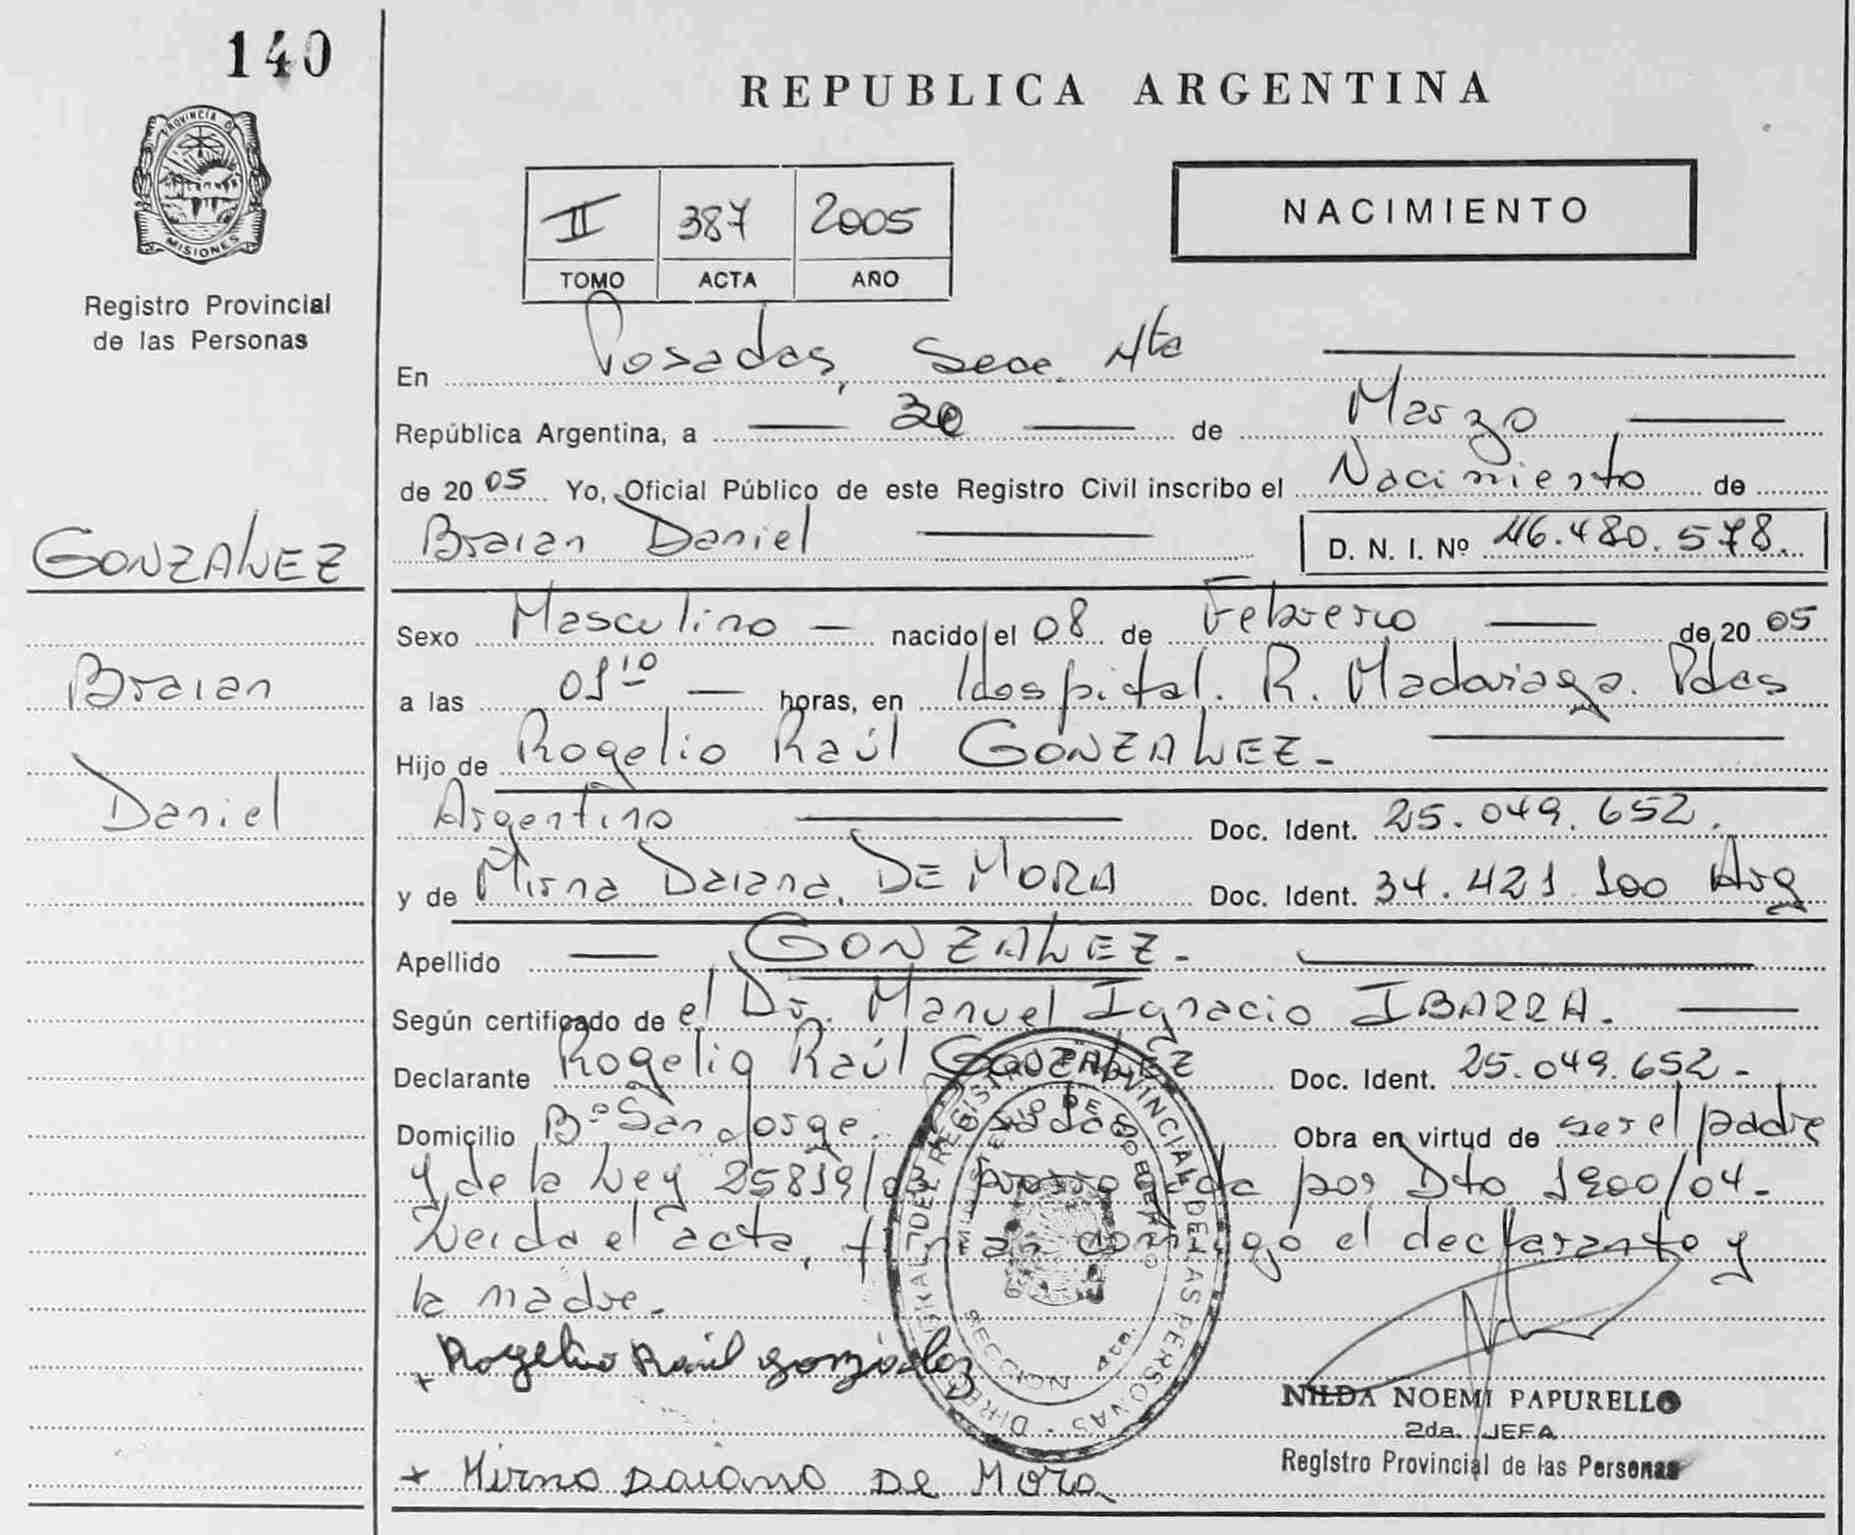 140
PROVINCIA D
MISIONES
Registro Provincial
de las Personas
REPUBLICA ARGENTINA
II 387 2005
TOMO ACTA AÑO
NACIMIENTO
En Posadas, Secc. 4ta
República Argentina, a 30 de Marzo
de 20 05 Yo, Oficial Público de este Registro Civil inscribo el Nacimiento de
Braian Daniel D. N. I. Nº 46.480.578.
GONZALEZ
Braian
Daniel
Sexo Masculino nacido el 08 de Febrero de 20 05
a las 01 10 horas, en Hospital. R. Madariaga. Pdas
Hijo de Rogelio Raúl GONZALEZ.
Argentino Doc. Ident. 25.049.652.
y de Mirna Daiana, DE MORA Doc. Ident. 34.421.100 Arg
Apellido GONZALEZ.
Según certificado de el Dr. Manuel Ignacio IBARRA.
Declarante Rogelio Raúl GONZALEZ Doc. Ident. 25.049.652.
Domicilio Bº San Jorge. Posadas Obra en virtud de ser el padre
y de la Ley 25819/03 prorrogada por Dto 1900/04.
Leida el acta, firman conmigo el declarante y
la madre.
DEL REGISTRO PROVINCIAL DE LAS PERSONAS
MINISTERIO DE GOBIERNO
SECCION
+ Rogelio Raúl gonzález
NILDA NOEMI PAPURELLO
2da. JEFA
Registro Provincial de las Personas
+ Mirna Daiana De Mora